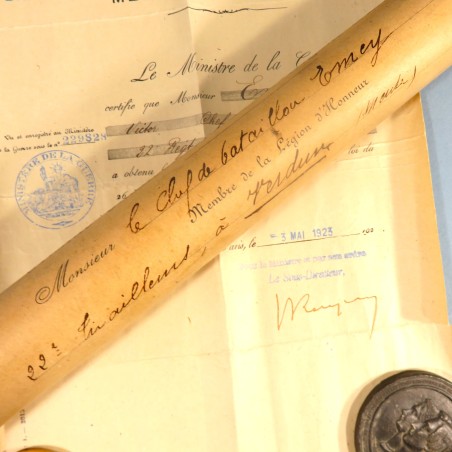 Le Ministre de la G
certifie que Monsieur
Victor
Vu et enregistré au Ministère
de la Guerre sous le n° 229828
22 Régt
a obtenu
MINISTÈRE DE LA GUERRE
Monsieur le Chef de bataillon Emey
Membre de la Légion d'Honneur
22e Tirailleurs, à Verdun (Meuse)
loi du
Paris, le 3 MAI 1923
Pour le Ministre et par son ordre
Le Sous-Directeur,